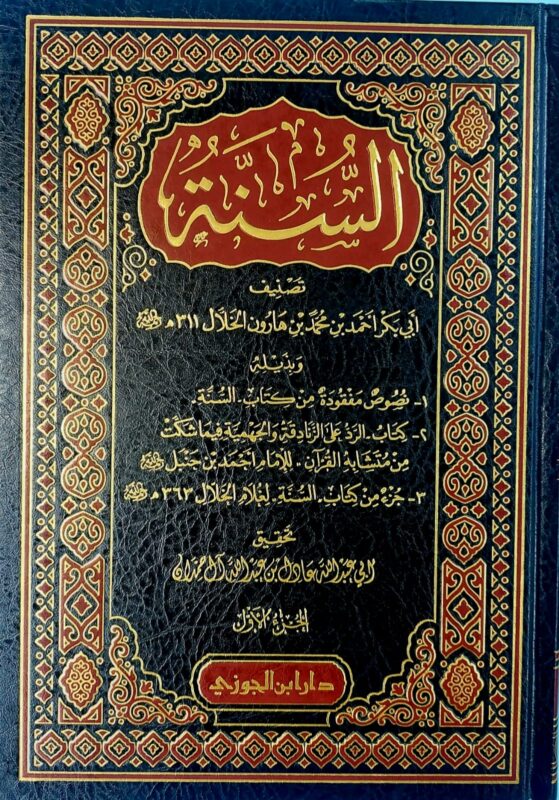 السُّنَّةُ
تَصْنِيف
أَبِي بَكر أحْمَد بْن مُحَمَّد بْن هَارُون الخَلَّال ٣١١ هـ رحمه الله
وَبِذَيْلِهِ
١- نُصُوصٌ مَفْقُودَةٌ مِنْ كِتَاب. السُّنَّة.
٢- كِتَاب. الرَدُّ عَلَى الزَّنَادِقَة وَالجَهْمِيَة فِيمَا شَكَّتْ
مِنْ مُتَشَابِهِ القُرْآن. لِلإِمَام أَحْمَد بْن حَنْبَل رحمه الله
٣- جُزْءٌ مِنْ كِتَاب. السُّنَّة. لِغُلَام الخَلَّال ٣٦٣ هـ رحمه الله
تَحْقِيق
أبي عبد الله عادل بن عبد الله آل حمدان
الجُزْءُ الأَوَّلُ
دار ابن الجوزي